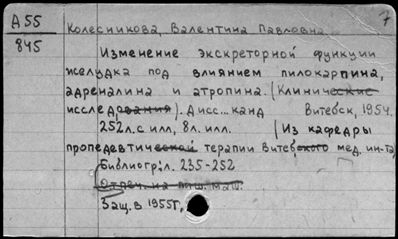 7
А55
845
Колесникова, Валентина Павловна
Изменение экскреторной функции
желудка под влиянием пилокарпина,
адреналина и атропина. (Клинические
исследования). Дисс... канд Витебск, 1954.
252л. с илл, 8л. илл. (Из кафедры
пропедевтической терапии Витебского мед. ин-та)
Библиогр: л. 235-252
Отпеч. на пиш. маш.
Защ. в 1955г,